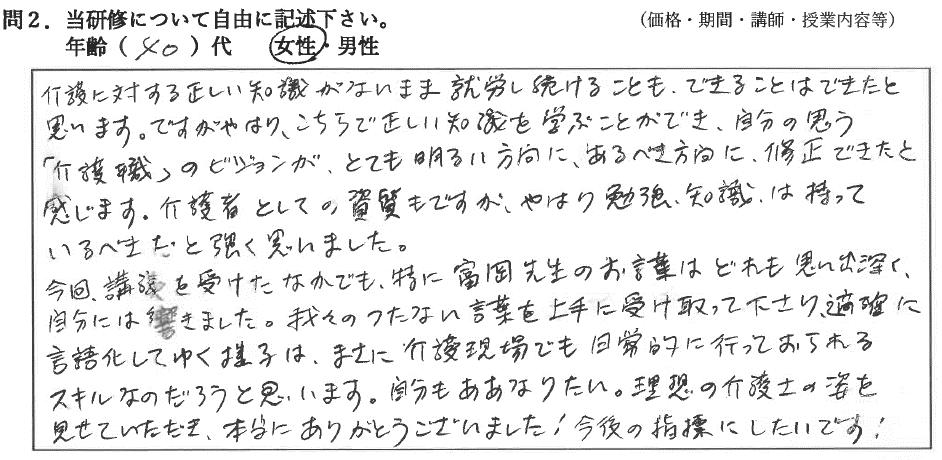 問２．当研修について自由に記述下さい。 （価格・期間・講師・授業内容等）
年齢（ 40 ）代 女性・男性
介護に対する正しい知識がないまま就労し続けることも、できることはできたと
思います。ですがやはり、こちらで正しい知識を学ぶことができ、自分の思う
「介護職」のビジョンが、とても明るい方向に、あるべき方向に、修正できたと
感じます。介護者としての資質もですが、やはり勉強、知識、は持って
いるべきだと強く思いました。
今回、講義を受けたなかでも、特に富岡先生のお言葉はどれも思い出深く、
自分には響きました。我々のつたない言葉を上手に受け取って下さり、適確に
言語化してゆく様子は、まさに介護現場でも日常的に行っておられる
スキルなのだろうと思います。自分もああなりたい。理想の介護士の姿を
見せていただき、本当にありがとうございました！今後の指標にしたいです！